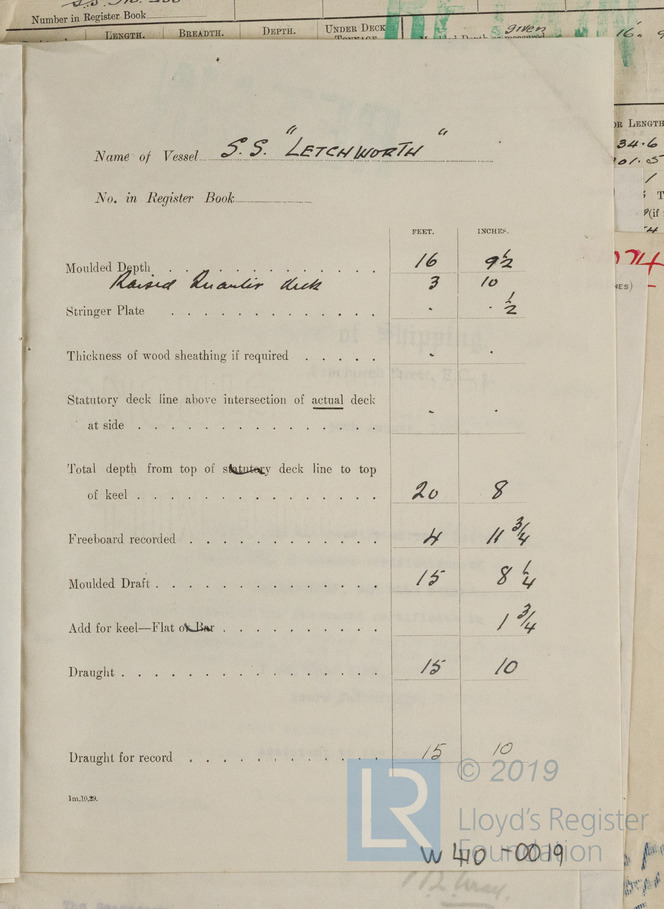 S.S. No.
Number in Register Book
LENGTH. BREADTH. DEPTH. UNDER DECK given
16
OR LENGTH
34.6
01.5
1
Name of Vessel S.S. "LETCHWORTH"
No. in Register Book
FEET. INCHES.
Moulded Depth 16 9½
Raised Quarter deck 3 10
Stringer Plate . . ½
Thickness of wood sheathing if required . .
Statutory deck line above intersection of actual deck
at side . .
Total depth from top of statutory deck line to top
of keel 20 8
Freeboard recorded 4 11¾
Moulded Draft 15 8¼
Add for keel—Flat or Bar 1¾
Draught 15 10
Draught for record 15 10
1m,10,29.
LR © 2019
Lloyd's Register
Foundation
W410-0019